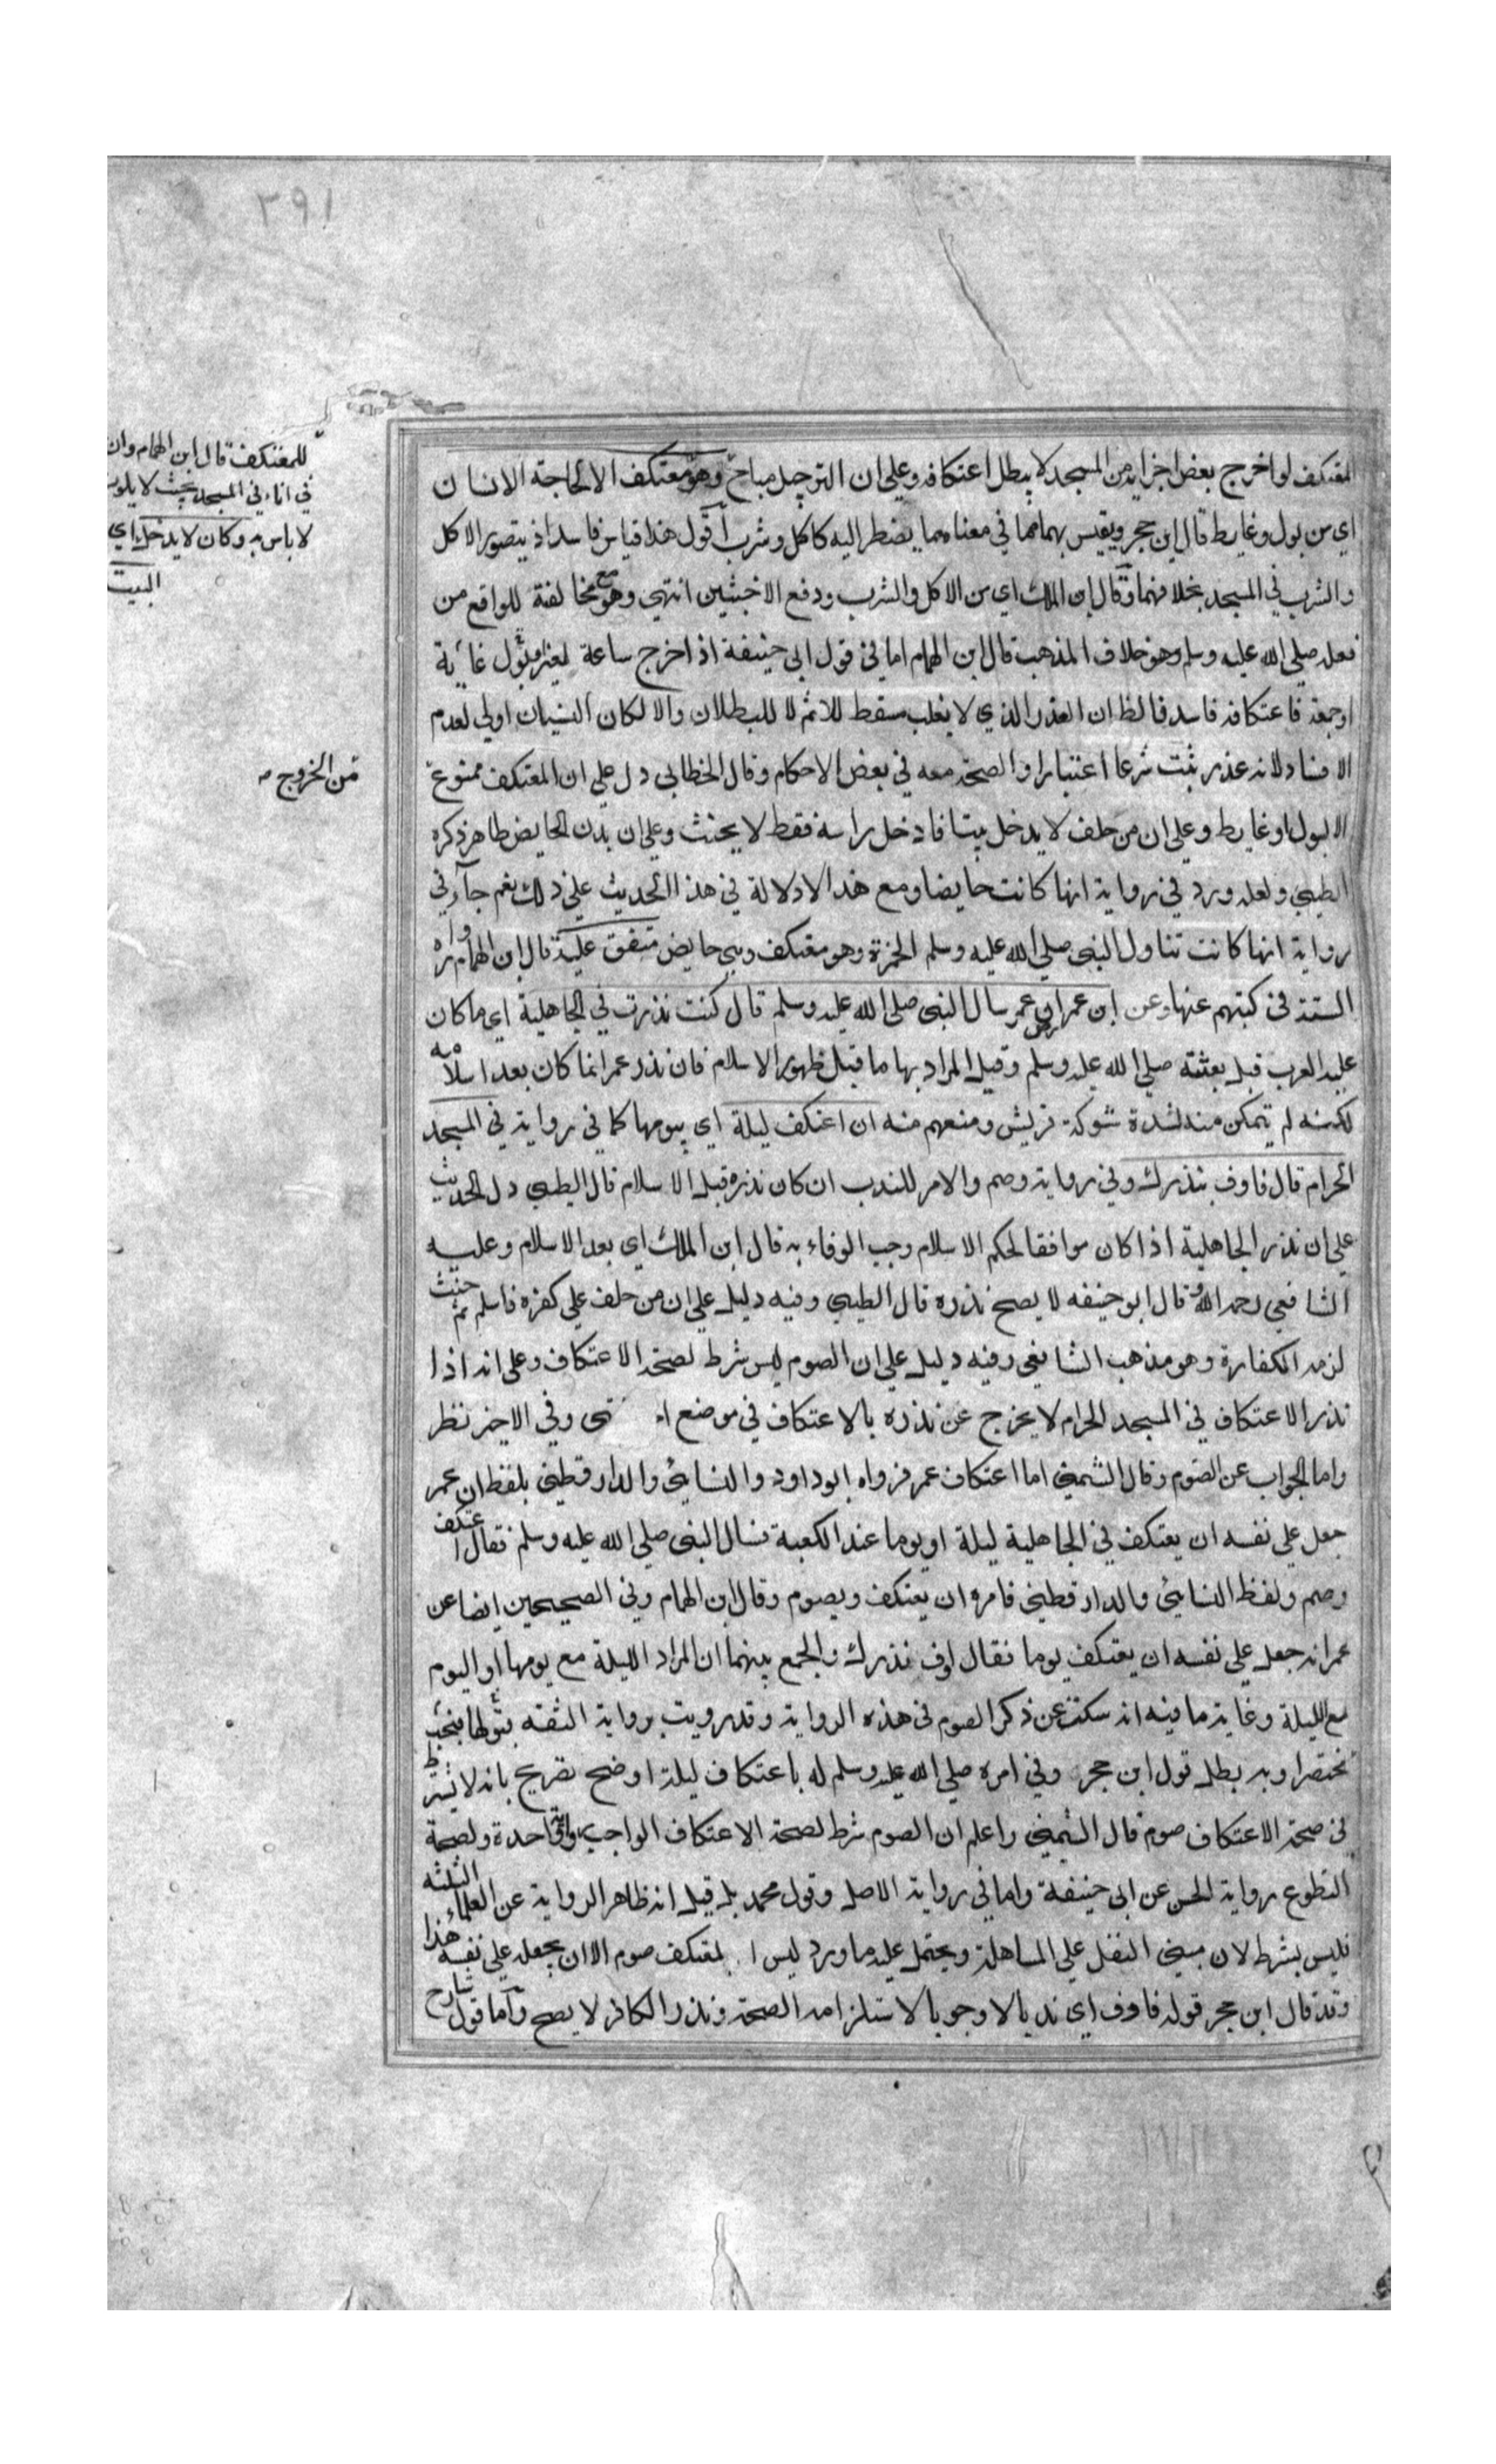 ٣٩١
المعتكف لو اخرج بعض اجزايه من المسجد لا يبطل اعتكافه وعلى ان الترجيل مباح وهو معتكف الا لحاجة الانسان
اي من بول وغايط قال ابن حجر ويقيس بهما ما في معناهما مما يضطر اليه كاكل وشرب اقول هذا قياس فاسد اذ يتصور الاكل
والشرب في المسجد بخلافهما وقال ابن الملك اي من الاكل والشرب ودفع الاخبثين انتهى وهو مع مخالفة للواقع من
فعله صلى الله عليه وسلم وهو خلاف المذهب قال ابن الهمام اما في قول ابي حنيفة اذا خرج ساعة لغير بول غاية
او جمعة فاعتكافه فاسد فالظان العذر الذي لا يغلب مسقط للاثم لا للبطلان والا لكان النسيان اولى لعدم
الافساد لانه عذر ثبت شرعا اعتبار او الصحة معه في بعض الاحكام وقال الخطابي دل على ان المعتكف ممنوع
الا لبول او غايط وعلى ان من حلف لا يدخل بيتا فادخل راسه فقط لا يحنث وعلى ان بدن الحايض طاهر ذكره
الطيبي ولعله ورد في رواية انها كانت حايضا ومع هذا لا دلالة في هذا الحديث على ذلك نعم جاء في
رواية انها كانت تناول النبي صلى الله عليه وسلم الخمرة وهو معتكف وهي حايض متفق عليه قال ابن الهمام رواه
الستة في كتبهم عنها وعن ابن عمر ان عمر سال النبي صلى الله عليه وسلم قال كنت نذرت في الجاهلية اي ما كان
عليه العرب قبل بعثته صلى الله عليه وسلم وقيل المراد بها ما قبل ظهور الاسلام فان نذر عمر انما كان بعد اسلامه
لكنه لم يتمكن منه لشدة شوكة قريش ومنعهم منه ان اعتكف ليلة اي بيومها كما في رواية في المسجد
الحرام قال فاوف بنذرك وفي رواية وصم والامر للندب ان كان نذره قبل الاسلام قال الطيبي دل الحديث
على ان نذر الجاهلية اذا كان موافقا لحكم الاسلام وجب الوفاء به قال ابن الملك اي بعد الاسلام وعليه
الشافعي رحمه الله وقال ابو حنيفه لا يصح نذره قال الطيبي وفيه دليل على ان من حلف على كفره فاسلم ثم حنث
لزمه الكفارة وهو مذهب الشافعي وفيه دليل على ان الصوم ليس شرط لصحة الاعتكاف وعلى انه اذا
نذر الاعتكاف في المسجد الحرام لا يخرج عن نذره بالاعتكاف في موضع وفي الاخير نظر
واما الجواب عن الصوم وقال الشمني اما اعتكاف عمر فرواه ابو داود والنسايئ والدارقطني بلفظ ان عمر
جعل على نفسه ان يعتكف في الجاهلية ليلة او يوما عند الكعبة فسال النبي صلى الله عليه وسلم فقال اعتكف
وصم ولفظ النسايئ والدارقطني فامره ان يعتكف ويصوم وقال ابن الهمام وفي الصحيحين ايضا عن
عمر انه جعل على نفسه ان يعتكف يوما فقال اوف نذرك والجمع بينهما ان المراد الليلة مع يومها او اليوم
مع الليلة وغاية ما فيه انه سكت عن ذكر الصوم في هذه الرواية وقد رويت برواية الثقه
مختصرا وبه بطل قول ابن حجر وفي امره صلى الله عليه وسلم له باعتكاف ليلة اوضح تصريح بانه لا يشترط
في صحة الاعتكاف صوم قال الشمني واعلم ان الصوم شرط لصحة الاعتكاف الواجب واحدة ولصحة
التطوع برواية الحسن عن ابي حنيفة واما في رواية الاصل وقول محمد بل قيل انه ظاهر الرواية عن العلماء الثلثه
فليس بشرط لان مبنى النفل على المساهلة ويحتمل عليه ما ورد ليس لمعتكف صوم الا ان يجعله على نفسه هذا
وقد قال ابن حجر قوله فاوف اي ندبا لا وجوبا لاستلزامه الصحة ونذر الكافر لا يصح واما قول شارح
للمعتكف قال ابن الهمام وان
في اناء في المسجد بحيث لا يلوث
لا باس به وكان لا يدخل اي
البيت
من الخروج